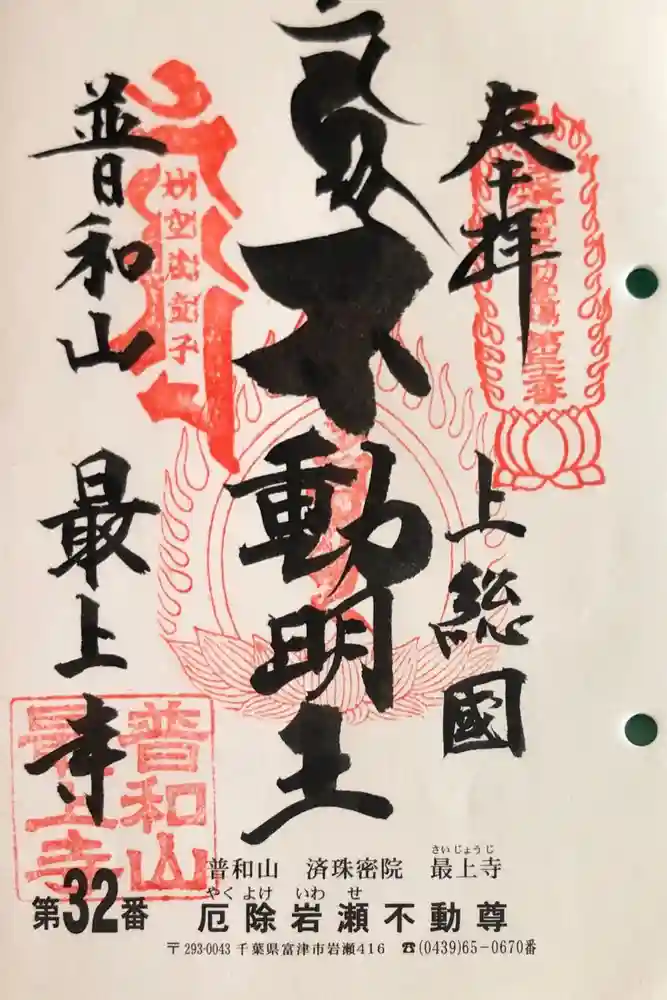 奉拝
上総國
不動明王
普和山
最上寺
普和山
最上寺
さいじょうじ
普和山 済珠密院 最上寺
第32番
やくよけ いわせ
厄除岩瀬不動尊
〒293-0043 千葉県富津市岩瀬416 ☎(0439)65-0670番